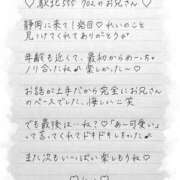 静岡に来て1発目♡れいのこと
見つけてくれてありがとう
年齢も近くて、最初からめーっちゃ
ノリ合ったね 楽しかった〜
お話が上手だから完全にお兄さん
のペースでした、悔しいこ 笑
でも最後は…ね？♡「あー可愛い」
って言ってくれてドキドキしちゃった♡
また次もいーっぱい楽しもうね♡